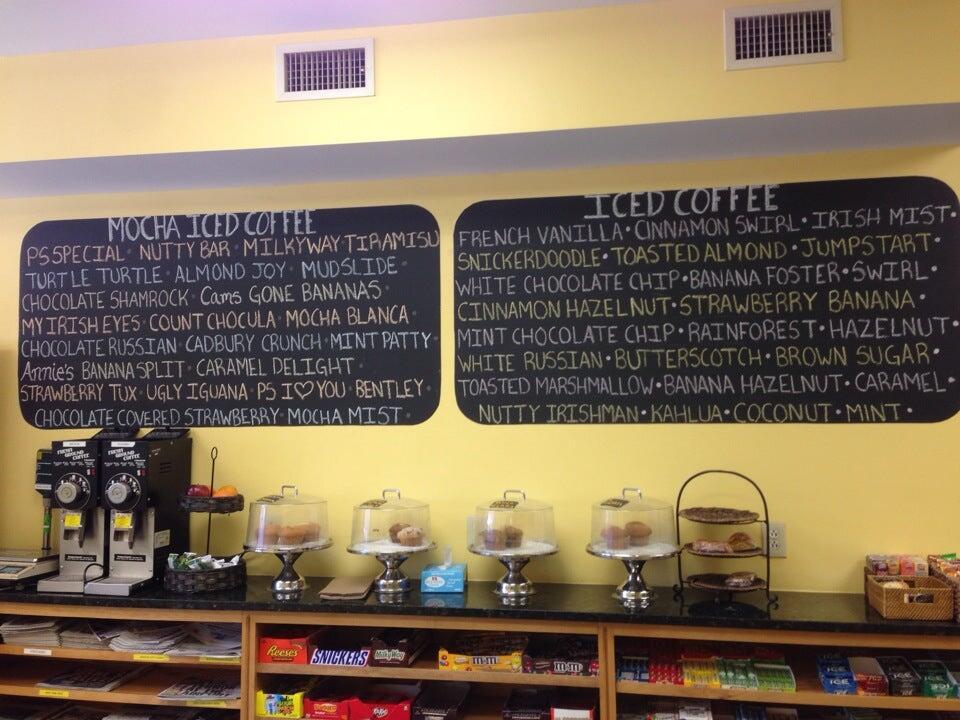 MOCHA ICED COFFEE
PS SPECIAL · NUTTY BAR · MILKYWAY · TIRAMISU
TURTLE TURTLE · ALMOND JOY · MUDSLIDE ·
CHOCOLATE SHAMROCK · Cams GONE BANANAS
MY IRISH EYES · COUNT CHOCULA · MOCHA BLANCA ·
CHOCOLATE RUSSIAN · CADBURY CRUNCH · MINT PATTY ·
Annie's BANANA SPLIT · CARAMEL DELIGHT ·
STRAWBERRY TUX · UGLY IGUANA · PS I♡YOU · BENTLEY ·
CHOCOLATE COVERED STRAWBERRY · MOCHA MIST ·
ICED COFFEE
FRENCH VANILLA · CINNAMON SWIRL · IRISH MIST ·
SNICKERDOODLE · TOASTED ALMOND · JUMPSTART ·
WHITE CHOCOLATE CHIP · BANANA FOSTER · SWIRL ·
CINNAMON HAZELNUT · STRAWBERRY BANANA ·
MINT CHOCOLATE CHIP · RAINFOREST · HAZELNUT ·
WHITE RUSSIAN · BUTTERSCOTCH · BROWN SUGAR ·
TOASTED MARSHMALLOW · BANANA HAZELNUT · CARAMEL ·
NUTTY IRISHMAN · KAHLUA · COCONUT · MINT ·
FRESH GROUND COFFEE
FRESH GROUND COFFEE
Reese's
SNICKERS
MilkyWay
m&m's
m&m's
ICE